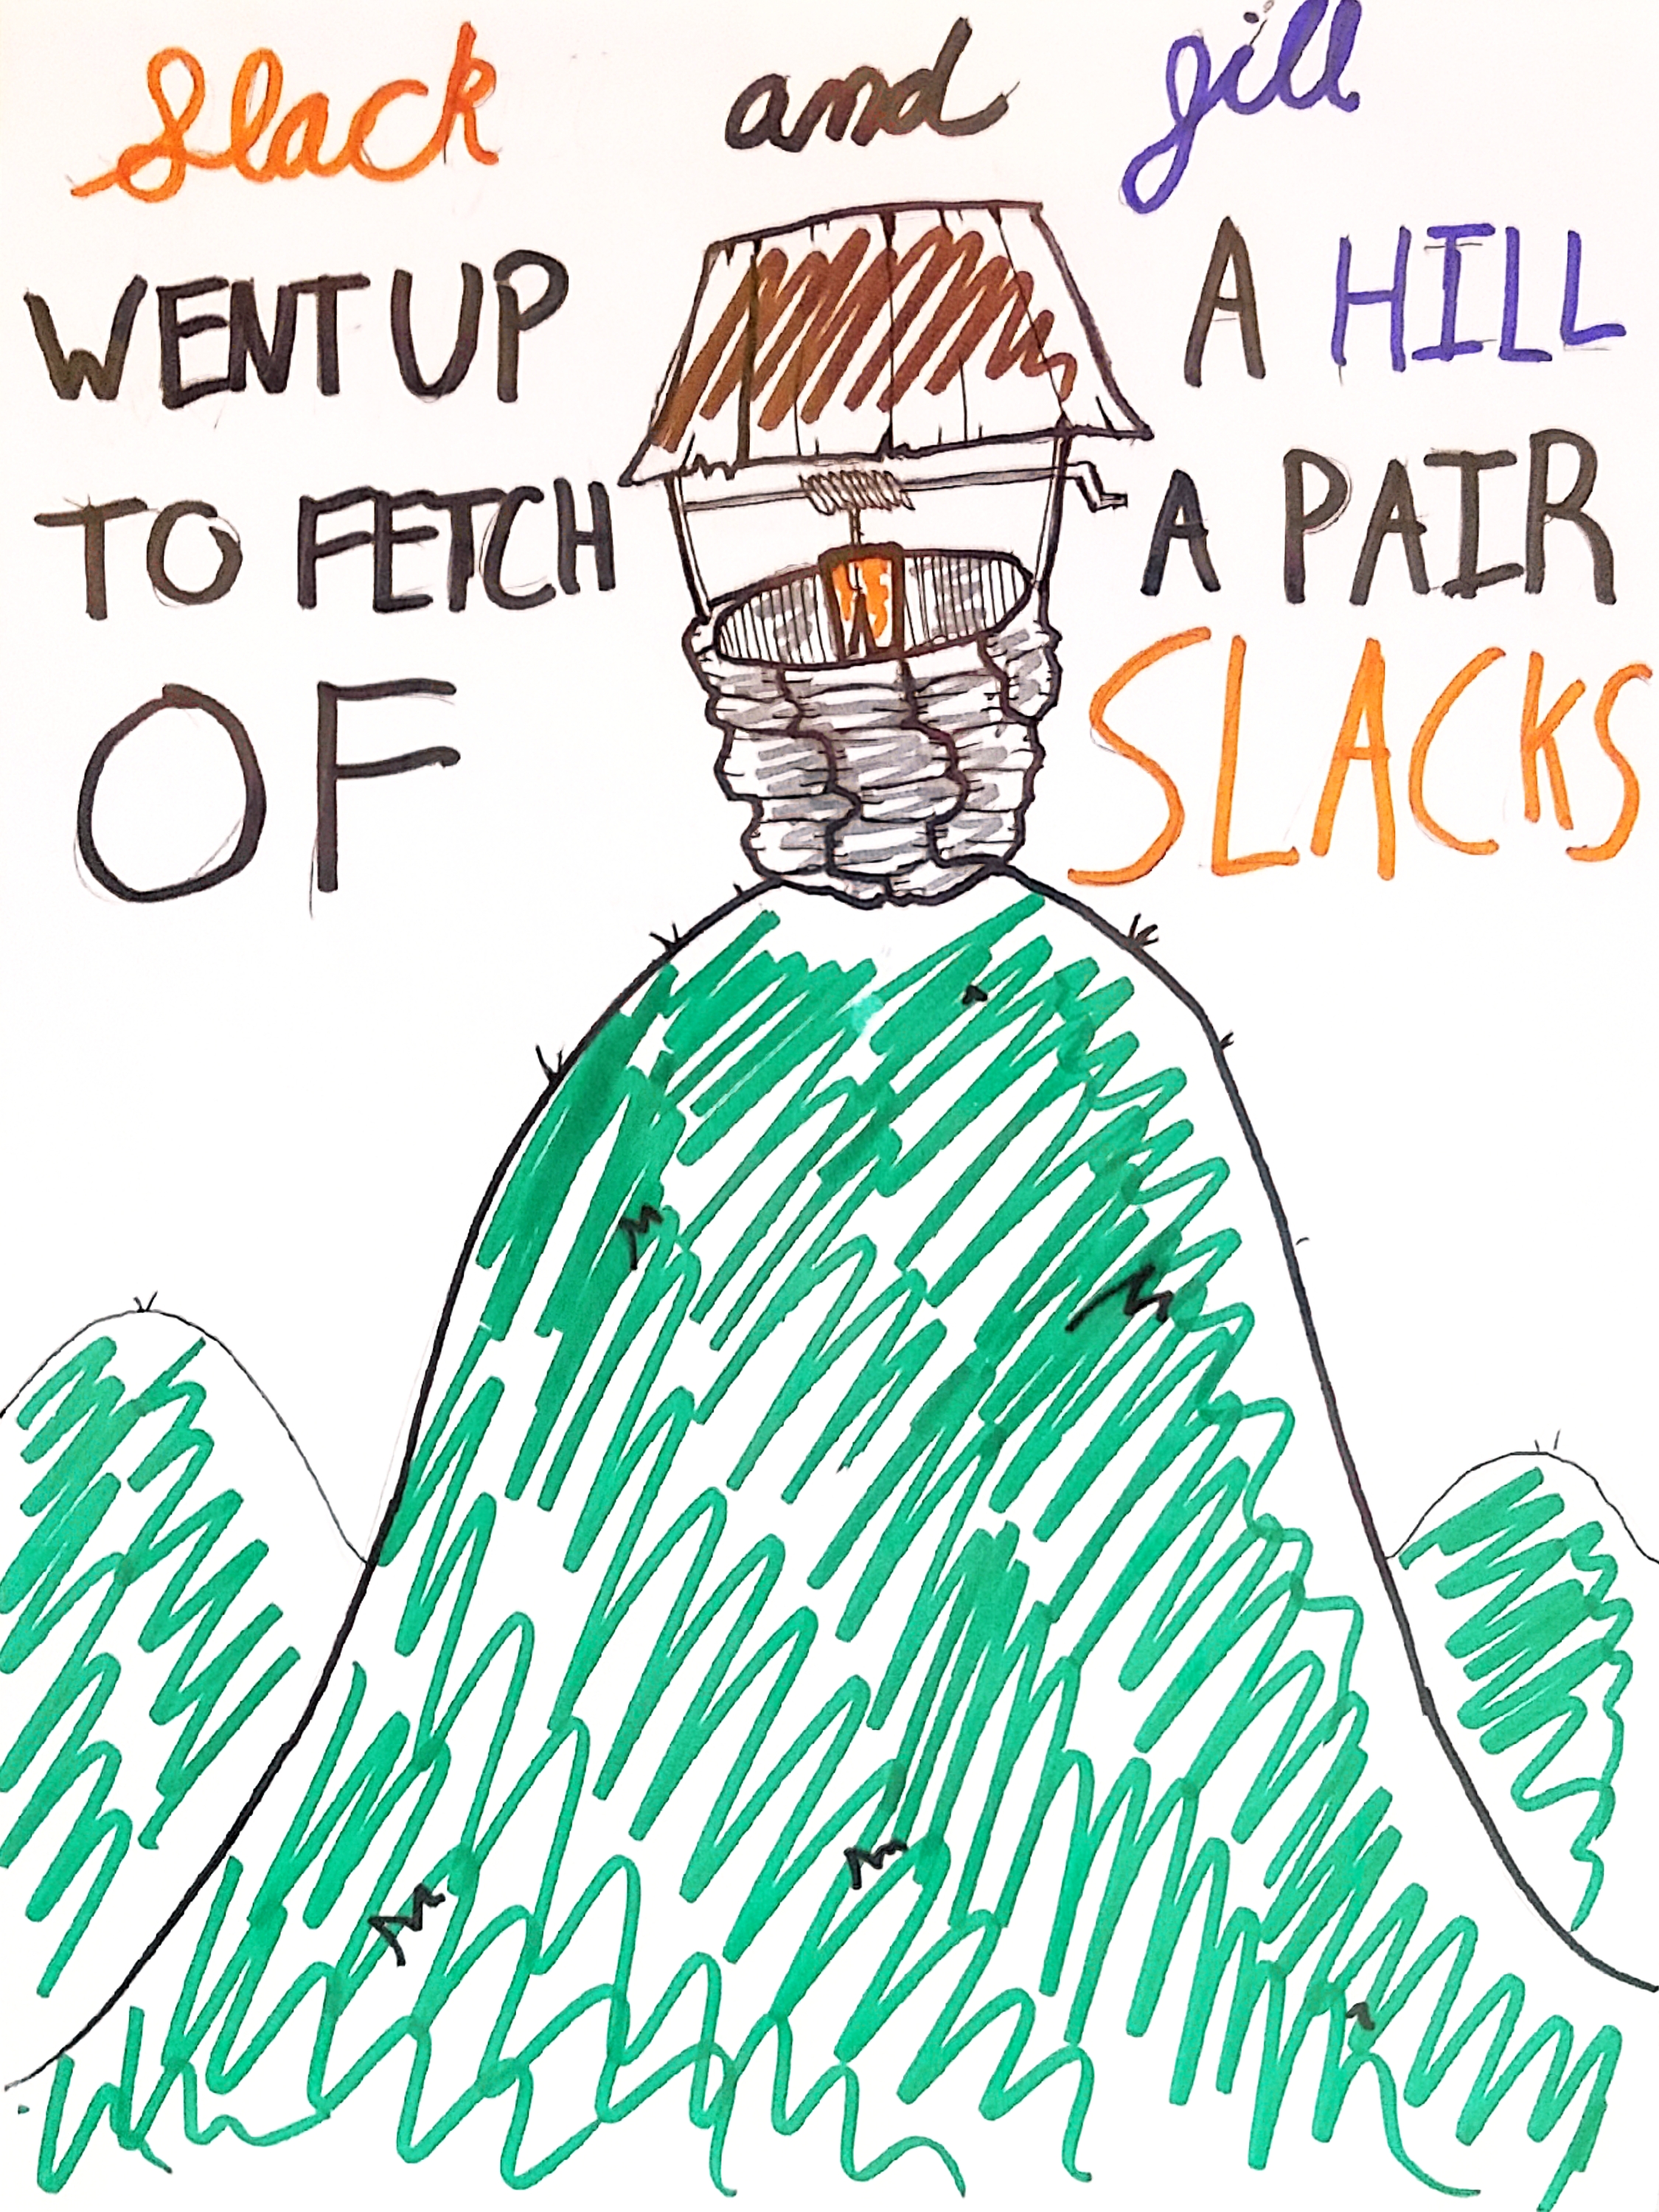 Slack and Jill
WENT UP A HILL
TO FETCH A PAIR
OF SLACKS